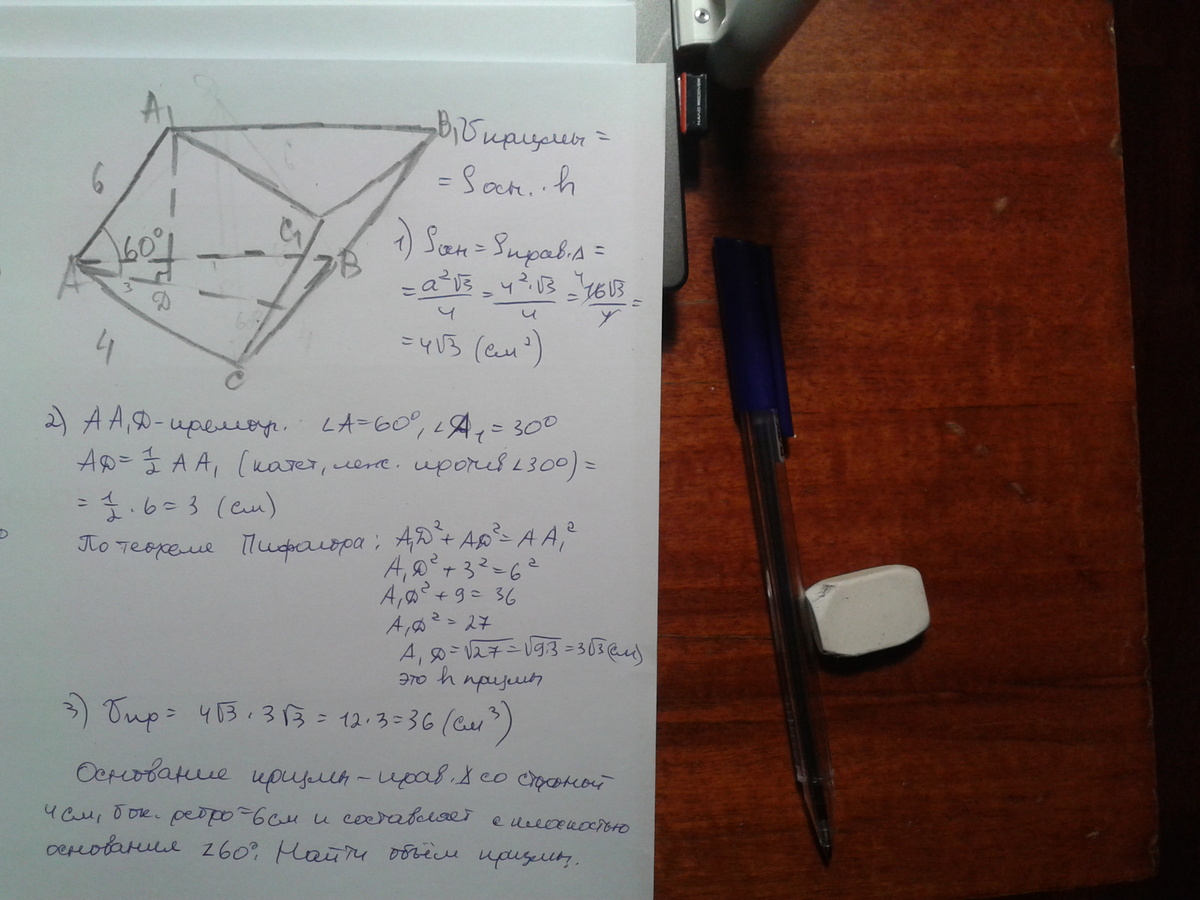 A₁
B₁
6
60°
C₁
A
3
D
B
4
C
Vпризмы =
= Sосн. · h
1) Sосн = Sправ.Δ =
= a²√3/4 = 4²·√3/4 = 16√3/4 =
= 4√3 (см²)
2) AA₁D - прямоуг. ∠A = 60°, ∠A₁ = 30°
AD = 1/2 AA₁ (катет, леж. против ∠30°) =
= 1/2 · 6 = 3 (см)
По теореме Пифагора: A₁D² + AD² = AA₁²
A₁D² + 3² = 6²
A₁D² + 9 = 36
A₁D² = 27
A₁D = √27 = √9·3 = 3√3 (см)
это h призмы
3) Vпр = 4√3 · 3√3 = 12 · 3 = 36 (см³)
Основание призмы - прав. Δ со стороной
4 см, бок. ребро = 6 см и составляет с плоскостью
основания ∠60°. Найти объём призмы.